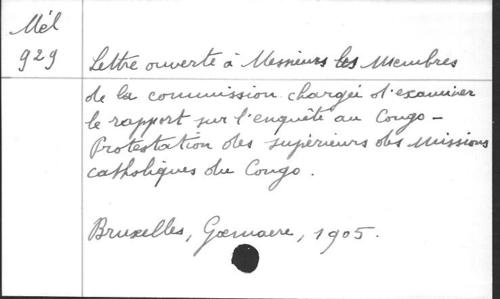 Mél
929
Lettre ouverte à Messieurs les Membres
de la commission chargée d'examiner
le rapport sur l'enquête au Congo -
Protestation des supérieurs des Missions
catholiques du Congo.
Bruxelles, Goemaere, 1905.